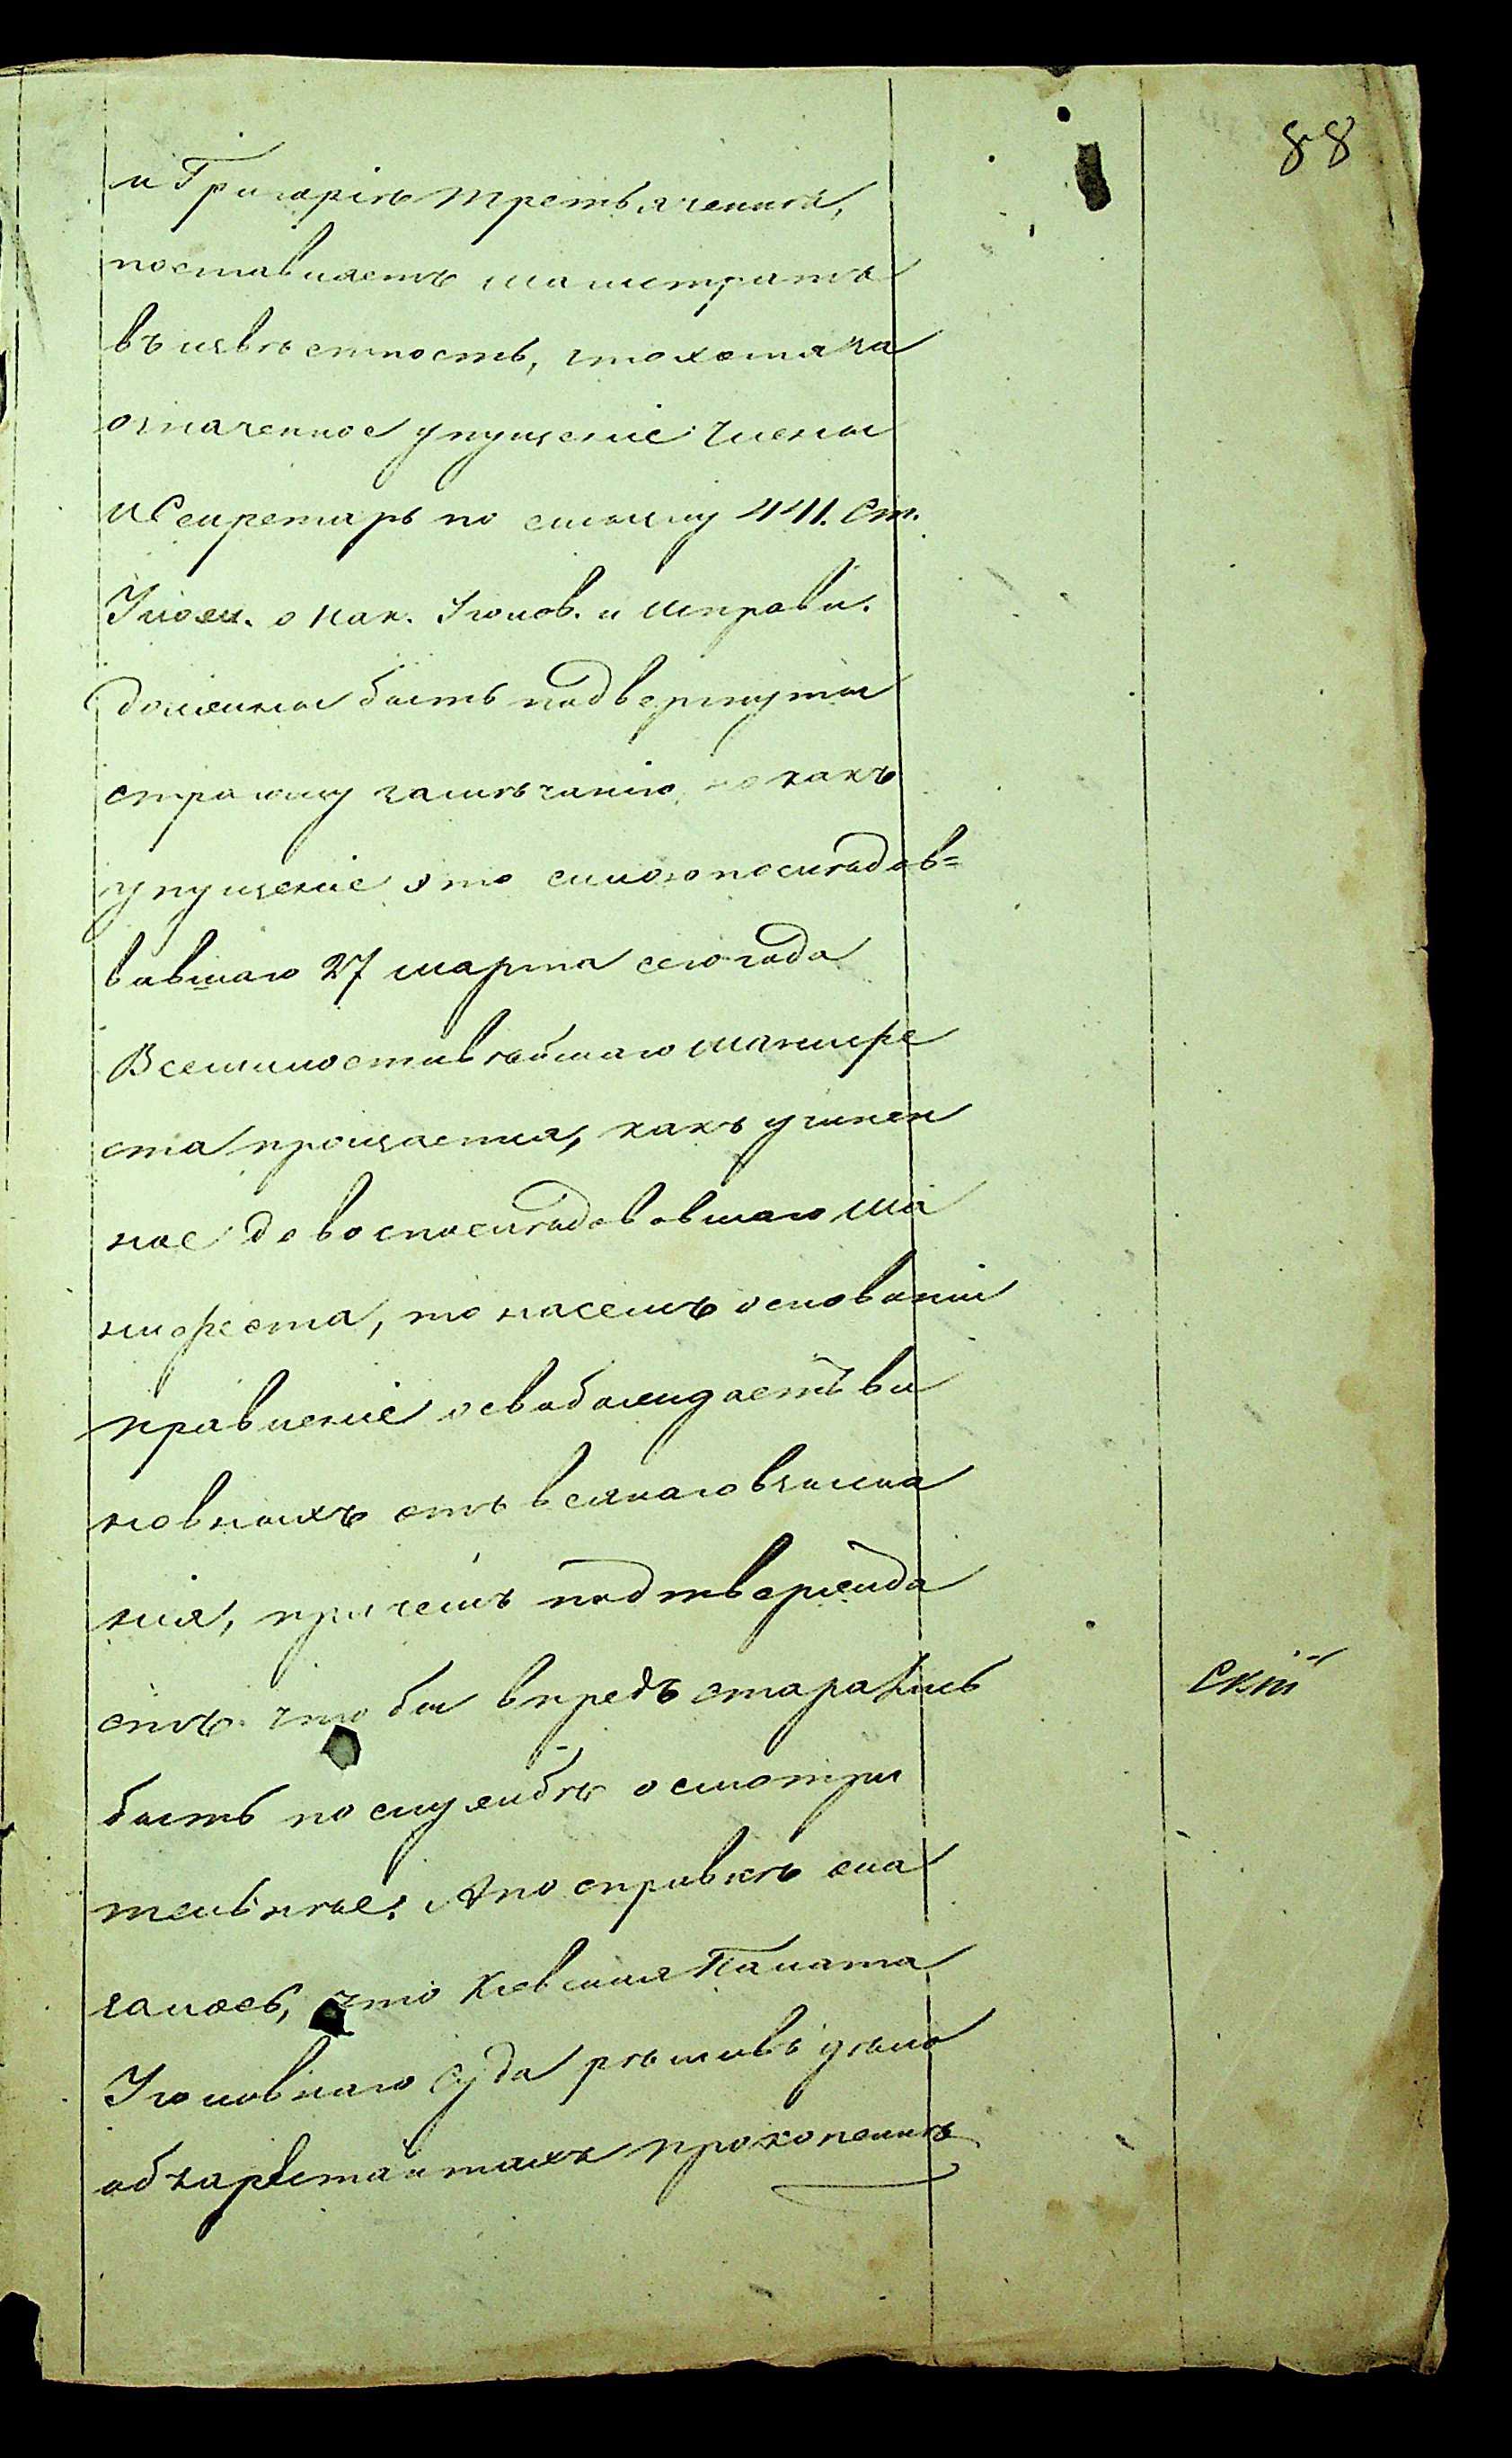 88
и Григоріѣ Третьяченкѣ,
поставляетъ магистрата
въ извѣстность, что хотя за
означенное упущеніе члены
и Секретарь по смыслу 441. Ст.
Улож. о нак. Уголов. и исправи.
должны быть подвергнуты
строгому замѣчанію, но какъ
упущеніе это силою послѣдов=
вавшаго 27 марта сего года
Всемилостивѣйшаго манифе
ста прощается, какъ учинен
ное до воспослѣдовавшаго ма
нифеста, то на семъ основаніи
правленіе освобождаетъ ви
новныхъ отъ всякаго взыска
нія, при чемъ подтвержда
етъ что бы впредъ старались
быть по службѣ осмотри
тельнѣе. А по справкѣ ока
залось, что Кіевская Палата
Уголовнаго Суда рѣшивъ дѣло
объ арестантахъ Прокопенкѣ
Скій